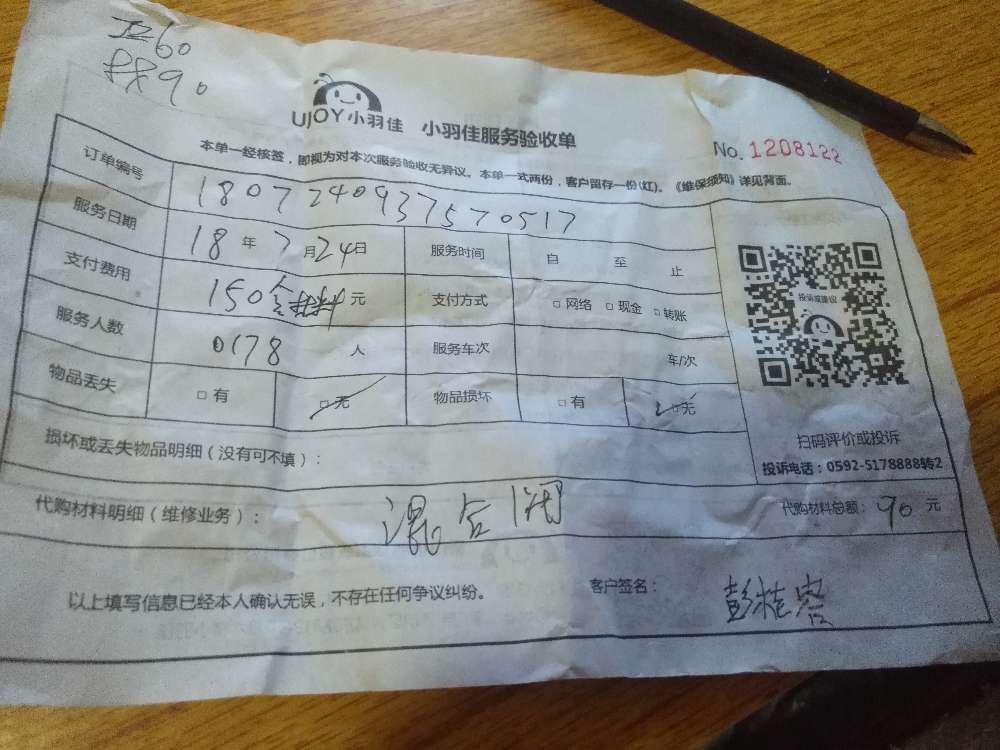 工60
材90
UJOY小羽佳 小羽佳服务验收单
No. 1208122
本单一经核签，即视为对本次服务验收无异议。本单一式两份，客户留存一份(红)。《维保须知》详见背面。
订单编号 180724093757 0517
服务日期 18 年 7 月 24 日 服务时间 自 至 止
支付费用 150含材料 元 支付方式 □ 网络 □ 现金 □ 转账
服务人数 0178 人 服务车次 车/次
物品丢失 □ 有 □ 无 物品损坏 □ 有 □ 无
投诉或建议
扫码评价或投诉
投诉电话：0592-5178888转2
损坏或丢失物品明细（没有可不填）：
代购材料明细（维修业务）： 混合阀 代购材料总额： 90 元
以上填写信息已经本人确认无误，不存在任何争议纠纷。 客户签名： 彭桂容